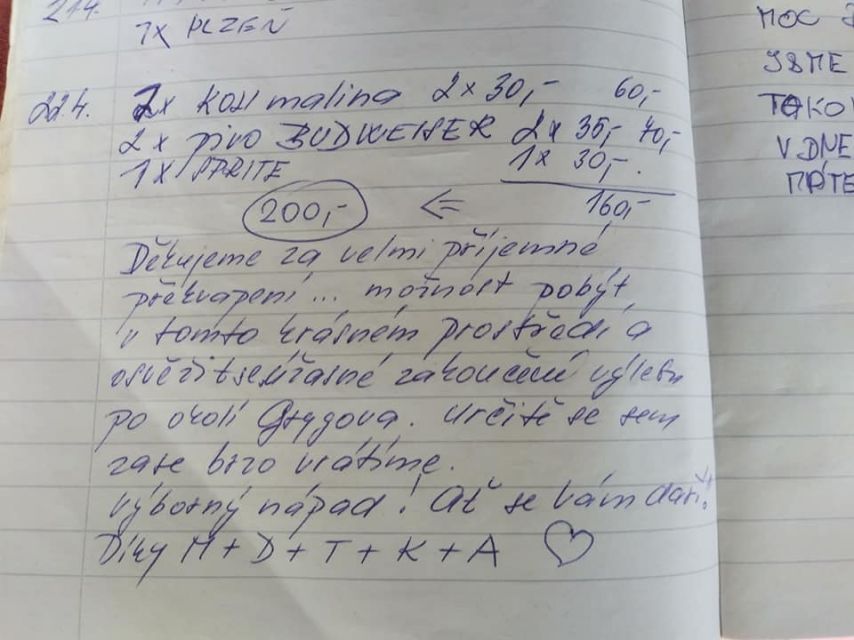 21.4.
1X PLZEŇ
22.4. 2x KOFI malina 2 x 30,- 60,-
2 x pivo BUDWEISER 2x 35,- 70,-
1 X SPRITE 1x 30,-.
200,- <= 160,-
Děkujeme za velmi příjemné
překvapení... možnost pobýt
v tomto krásném prostředí a
osvěžit se. Úžasné zakončení výletu
po okolí Grygova. Určitě se sem
zase brzo vrátíme.
Výborný nápad! Ať se Vám daří!
Díky M + D + T + K + A ♡
MOC
JSME
TAKOV
V DNE